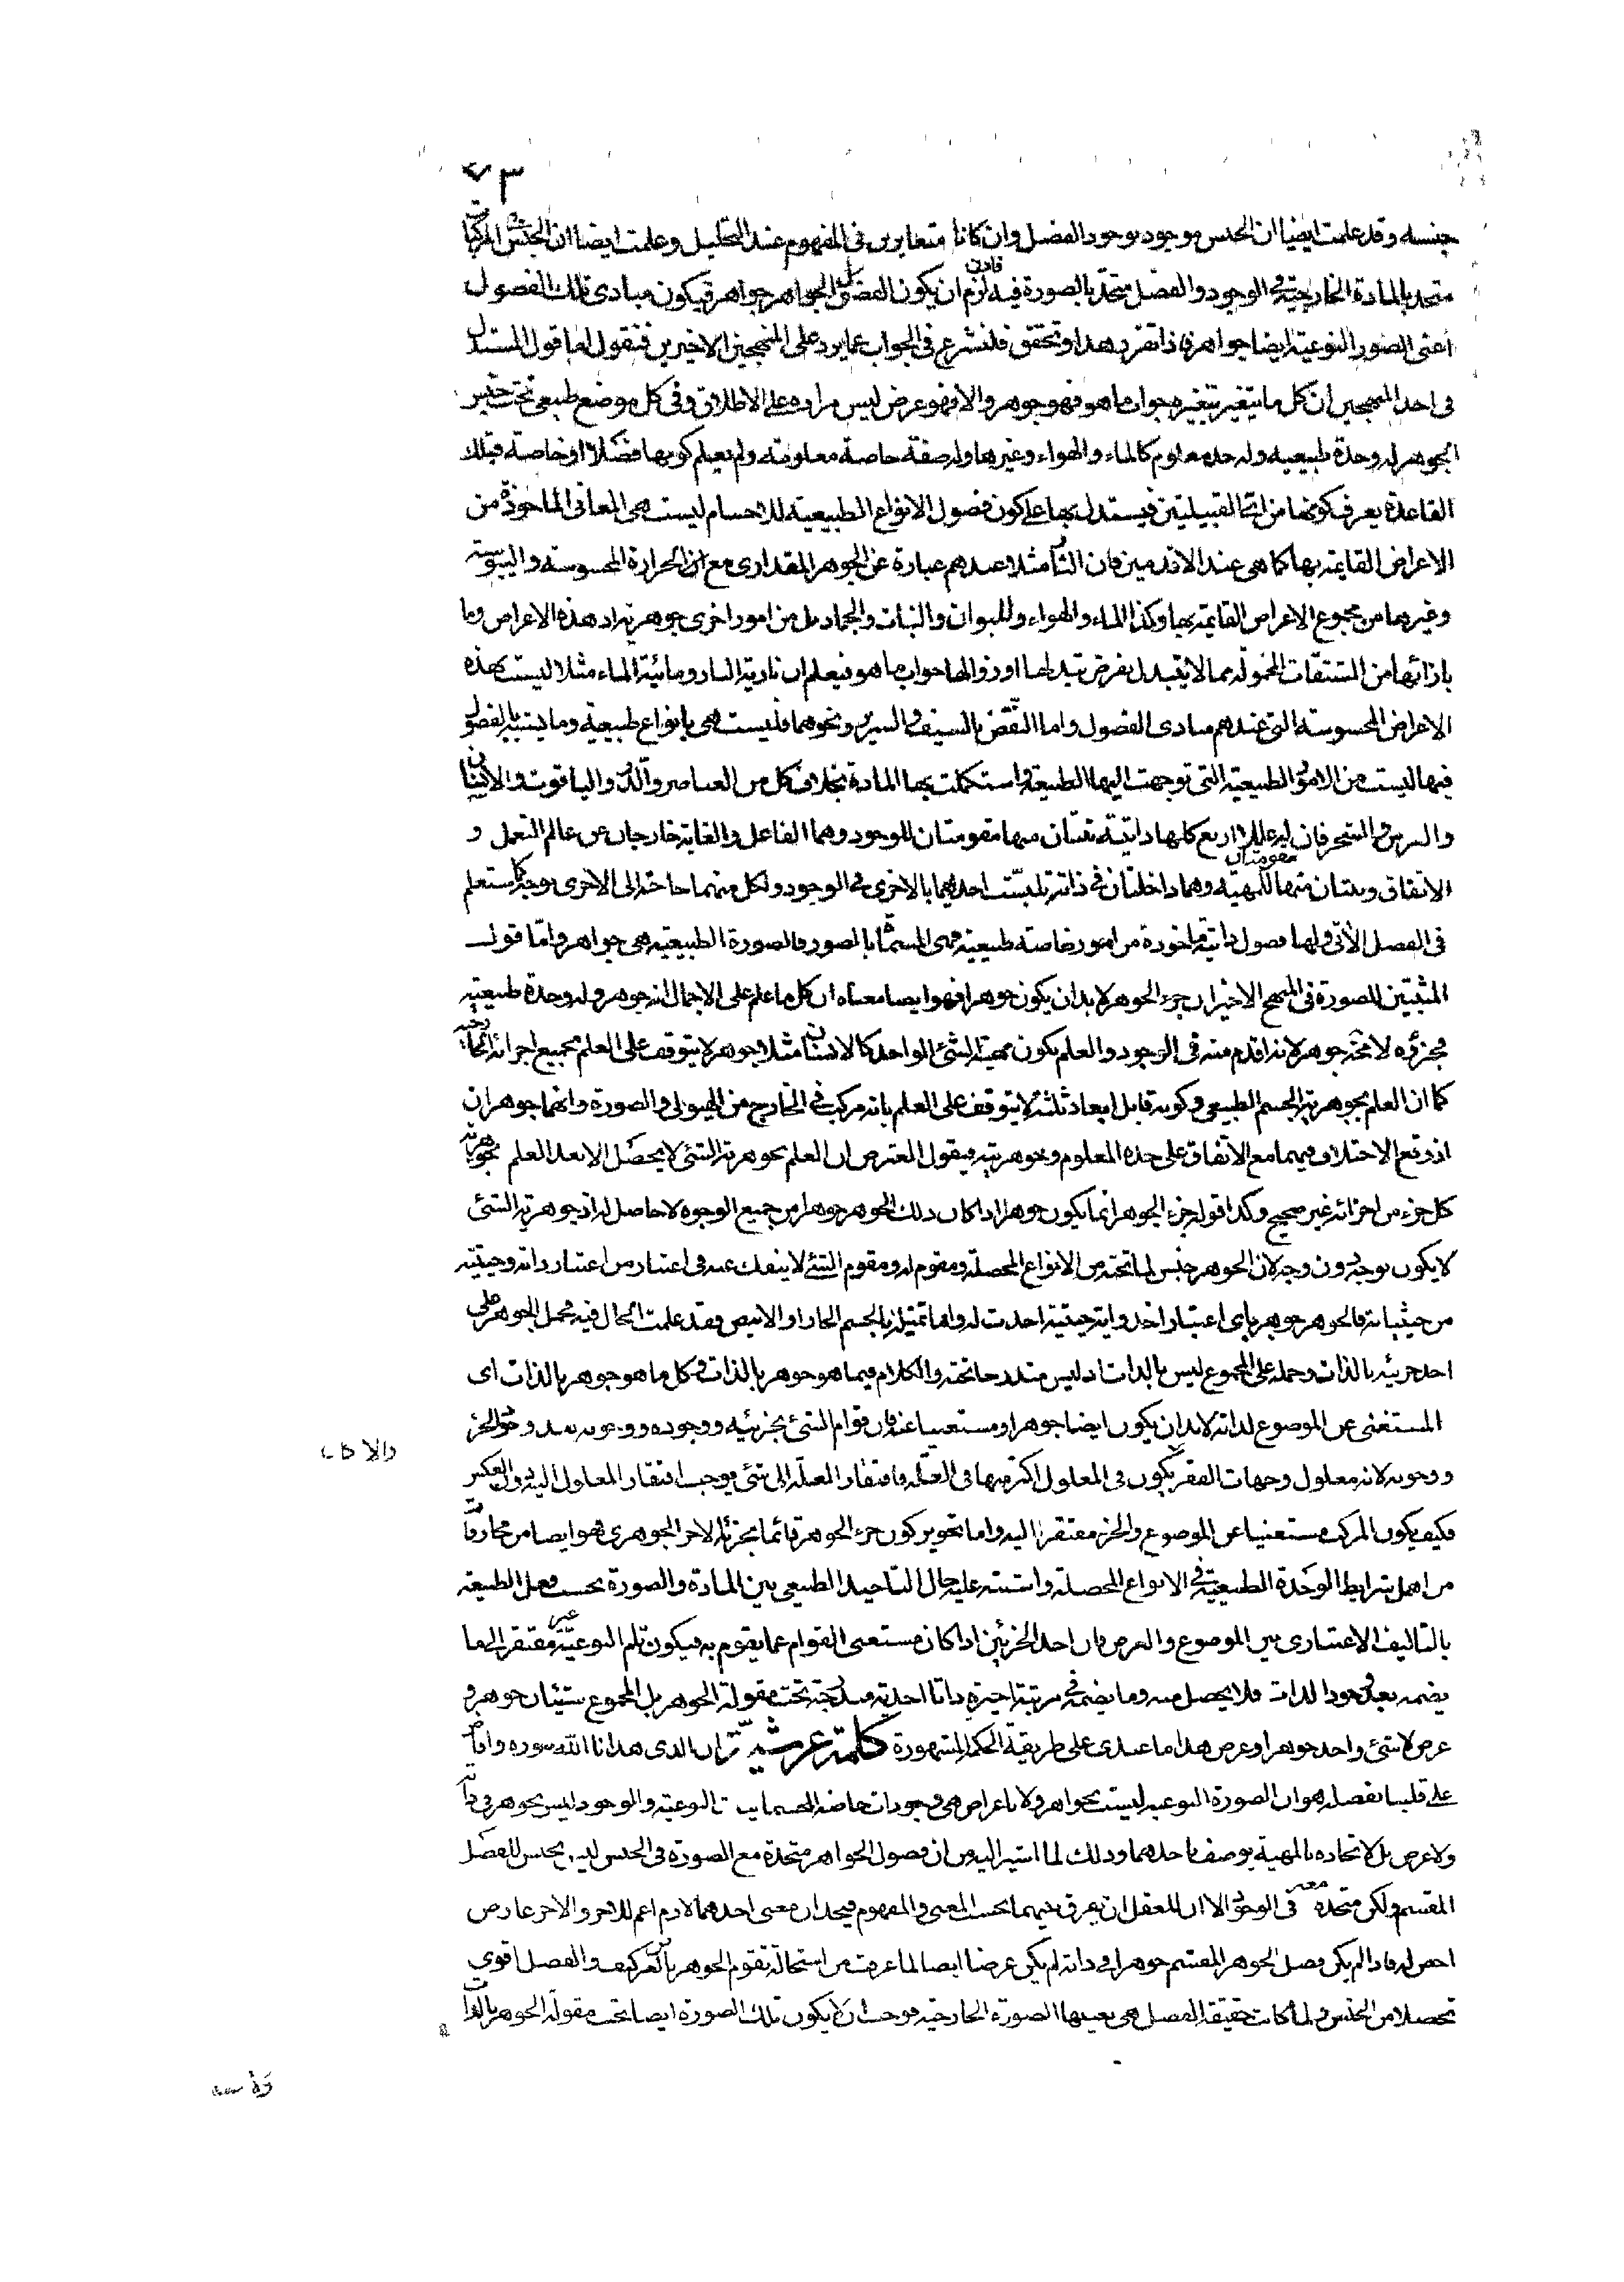 ٧٣
جنسه وقد علمت ايضا ان الجنس موجود بوجود الفصل وان كانا متغايرين فى المفهوم عند التحليل وعلمت ايضا ان الجنس فى المركبات
متحد بالمادة الخارجية فى الوجود والفصل متحد بالصورة فيه فاذن لزم ان يكون الفصل الجواهر جواهر فيكون مبادى تلك الفصول
اعنى الصور النوعية ايضا جواهر فاذا تقرر هذا وتحقق فلنشرع فى الجواب عما يرد على المنهجين الاخيرين فنقول اما قول المستدل
فى احد المنهجين ان كل ما يتغير بتغيره جواب ما هو فهو جوهر والا فهو عرض ليس مراده على الاطلاق وفى كل موضع طبيعى تحت جنس
الجوهر له وحدة طبيعيه وله حد معلوم كالماء والهواء وغيرها وله صفة خاصة معلومة ولم يعلم كونها فصلا او خاصة فبتلك
القاعدة يعرف كونها من اى القبيلتين فيستدل بها على كون فصول الانواع الطبيعية للاجسام ليست هى المعانى الماخوذة من
الاعراض القايمة بها كما هى عند الاقدمين فان النار مثلا عندهم عبارة عن الجوهر المقدارى مع الحرارة المحسوسة واليبوسة
وغيرهما من مجموع الاعراض القايمة بها وكذا الماء والهواء والحيوان والنبات والجماد بل من امور اخرى جوهرية اذ هذه الاعراض وما
بازائها من المشتقات المحمولة مما لا يتبدل بفرض تبدلها او زوالها جواب ما هو فيعلم ان نارية النار ومائية الماء مثلا ليست بهذه
الاعراض المحسوسة التى عندهم مبادى الفصول واما النقض بالسيف والسرير ونحوهما فليست هى بانواع طبيعية وما يشبه بالفصول
فيها ليست من الامور الطبيعية التى توجهت اليها الطبيعة واستكملت بها المادة بخلاف كل من العناصر والدر والياقوت والانسان
والفرس والشجر فان له عللا اربع كلها ذاتية ثنتان منها مقومتان للوجود وهما الفاعل والغاية خارجان عن عالم التعمل و
الاتفاق وثنتان منها مقومتان للمهية وهما داخلتان فى ذاته تلبست احديهما بالاخرى فى الوجود ولكل منهما حاجة الى الاخرى بوجه كما ستعلم
فى الفصل الآتى ولها فصول ذاتية ماخوذة من امور خاصة طبيعية وهى المسماة بالصور فالصورة الطبيعية هى جواهر واما قول
المثبتين للصورة فى المنهج الاخير ان جزء الجوهر لابد ان يكون جوهرا فهو ايضا معناه ان كل ما علم على الاجمال انه جوهر وله وحدة طبيعية
فجزؤه لا محة جوهر لانه اقدم منه فى الوجود والعلم بكون مهية الشئ الواحد كالانسان مثلا جوهر لا يتوقف على العلم بجميع اجزائه الخارجية
كما ان العلم بجوهرية الجسم الطبيعى وكونه قابل ابعاد ثلثة لا يتوقف على العلم بانه مركب فى الخارج من الهيولى والصورة وانهما جوهران
اذ وقع الاختلاف فيهما مع الاتفاق على حده المعلوم وجوهريته فيقول المعترض ان العلم بجوهرية الشئ لا يحصل الا بعد العلم بجوهرية
كل جزء من اجزائه غير صحيح وكذا قوله جزء الجوهر انما يكون جوهرا اذا كان ذلك الجوهر جوهرا من جميع الوجوه لا حاصل له اذ جوهرية الشئ
لا يكون بوجه دون وجه لان الجوهر جنس لما تحته من الانواع المحصلة ومقوم له ومقوم الشئ لا ينفك عنه فى اعتبار من اعتبار ذاته وحيثية
من حيثياته فالجوهر جوهر باى اعتبار اخذ واية حيثية اخذت له واما تمثيله بالجسم الحار او الابيض فقد علمت الحال فيه فحمل الجوهر على
احد جزئيه بالذات وحمله على المجموع ليس بالذات اذ ليس مندرجا تحته والكلام فيما هو جوهر بالذات فكل ما هو جوهر بالذات اى
المستغنى عن الموضوع لذاته لابد ان يكون ايضا جوهرا ومستغنيا عنه فان قوام الشئ بجزئيه ووجوده ووجوبه بعد وجود الجزء
ووجوبه لانه معلول وجهات الفقر يكون فى المعلول اكثر منها فى العلة فافتقار العلة الى شئ يوجب افتقار المعلول اليه دون العكس
فكيف يكون المركب مستغنيا عن الموضوع والجزء مفتقرا اليه واما تجويز كون جزء الجوهر قائما بجزئه الاخر الجوهرى فهو ايضا من مجازفات
من اهمل شرايط الوحدة الطبيعية فى الانواع المحصلة واشتبه عليه حال التاحيد الطبيعى بين المادة والصورة بحسب فعل الطبيعة
بالتاليف الاعتبارى بين الموضوع والعرض فان احد الجزئين اذا كان مستغنى القوام عما يقوم به فيكون تام النوعية غير مفتقر الى ما
يضمه بعد وجود الذات فلا يحصل منه وما يضمه فى مرتبة اخيرة ذاتا احدية مندرجة تحت مقولة الجوهر بل المجموع شيئان جوهر و
عرض لا شئ واحد جوهر او عرض هذا ما عندى على طريقة الحكماء المشهورة كلمة عرشية ثم ان الذى هدانا الله بنوره وافاض
على قلبنا بفضله هو ان الصورة النوعية ليست بجواهر ولا باعراض هى وجودات خاصة للجسمانيات النوعية والوجود ليس بجوهر فى ذاته
ولا عرض بل لاتحاده بالمهية يوصف باحدهما وذلك لما اشير اليه من ان فصول الجواهر متحدة مع الصورة فى الجنس ليس بجنس للفصل
المقسم ولكن متحدة معه فى الوجود الا ان للعقل ان يفرق بينهما بحسب المعنى والمفهوم فيجد ان معنى احدهما لازم اعم للاخر والاخر عارض
اخص له فاذا لم يكن فصل الجوهر المقسم جوهرا فى ذاته لم يكن عرضا ايضا لما عرفت من استحالة تقوم الجوهر بالعرض كيف والفصل اقوى
تحصلا من الجنس ولما كانت حقيقة الفصل هى بعينها الصورة الخارجية فوجب ان لا يكون تلك الصورة ايضا تحت مقولة الجوهر بالذات